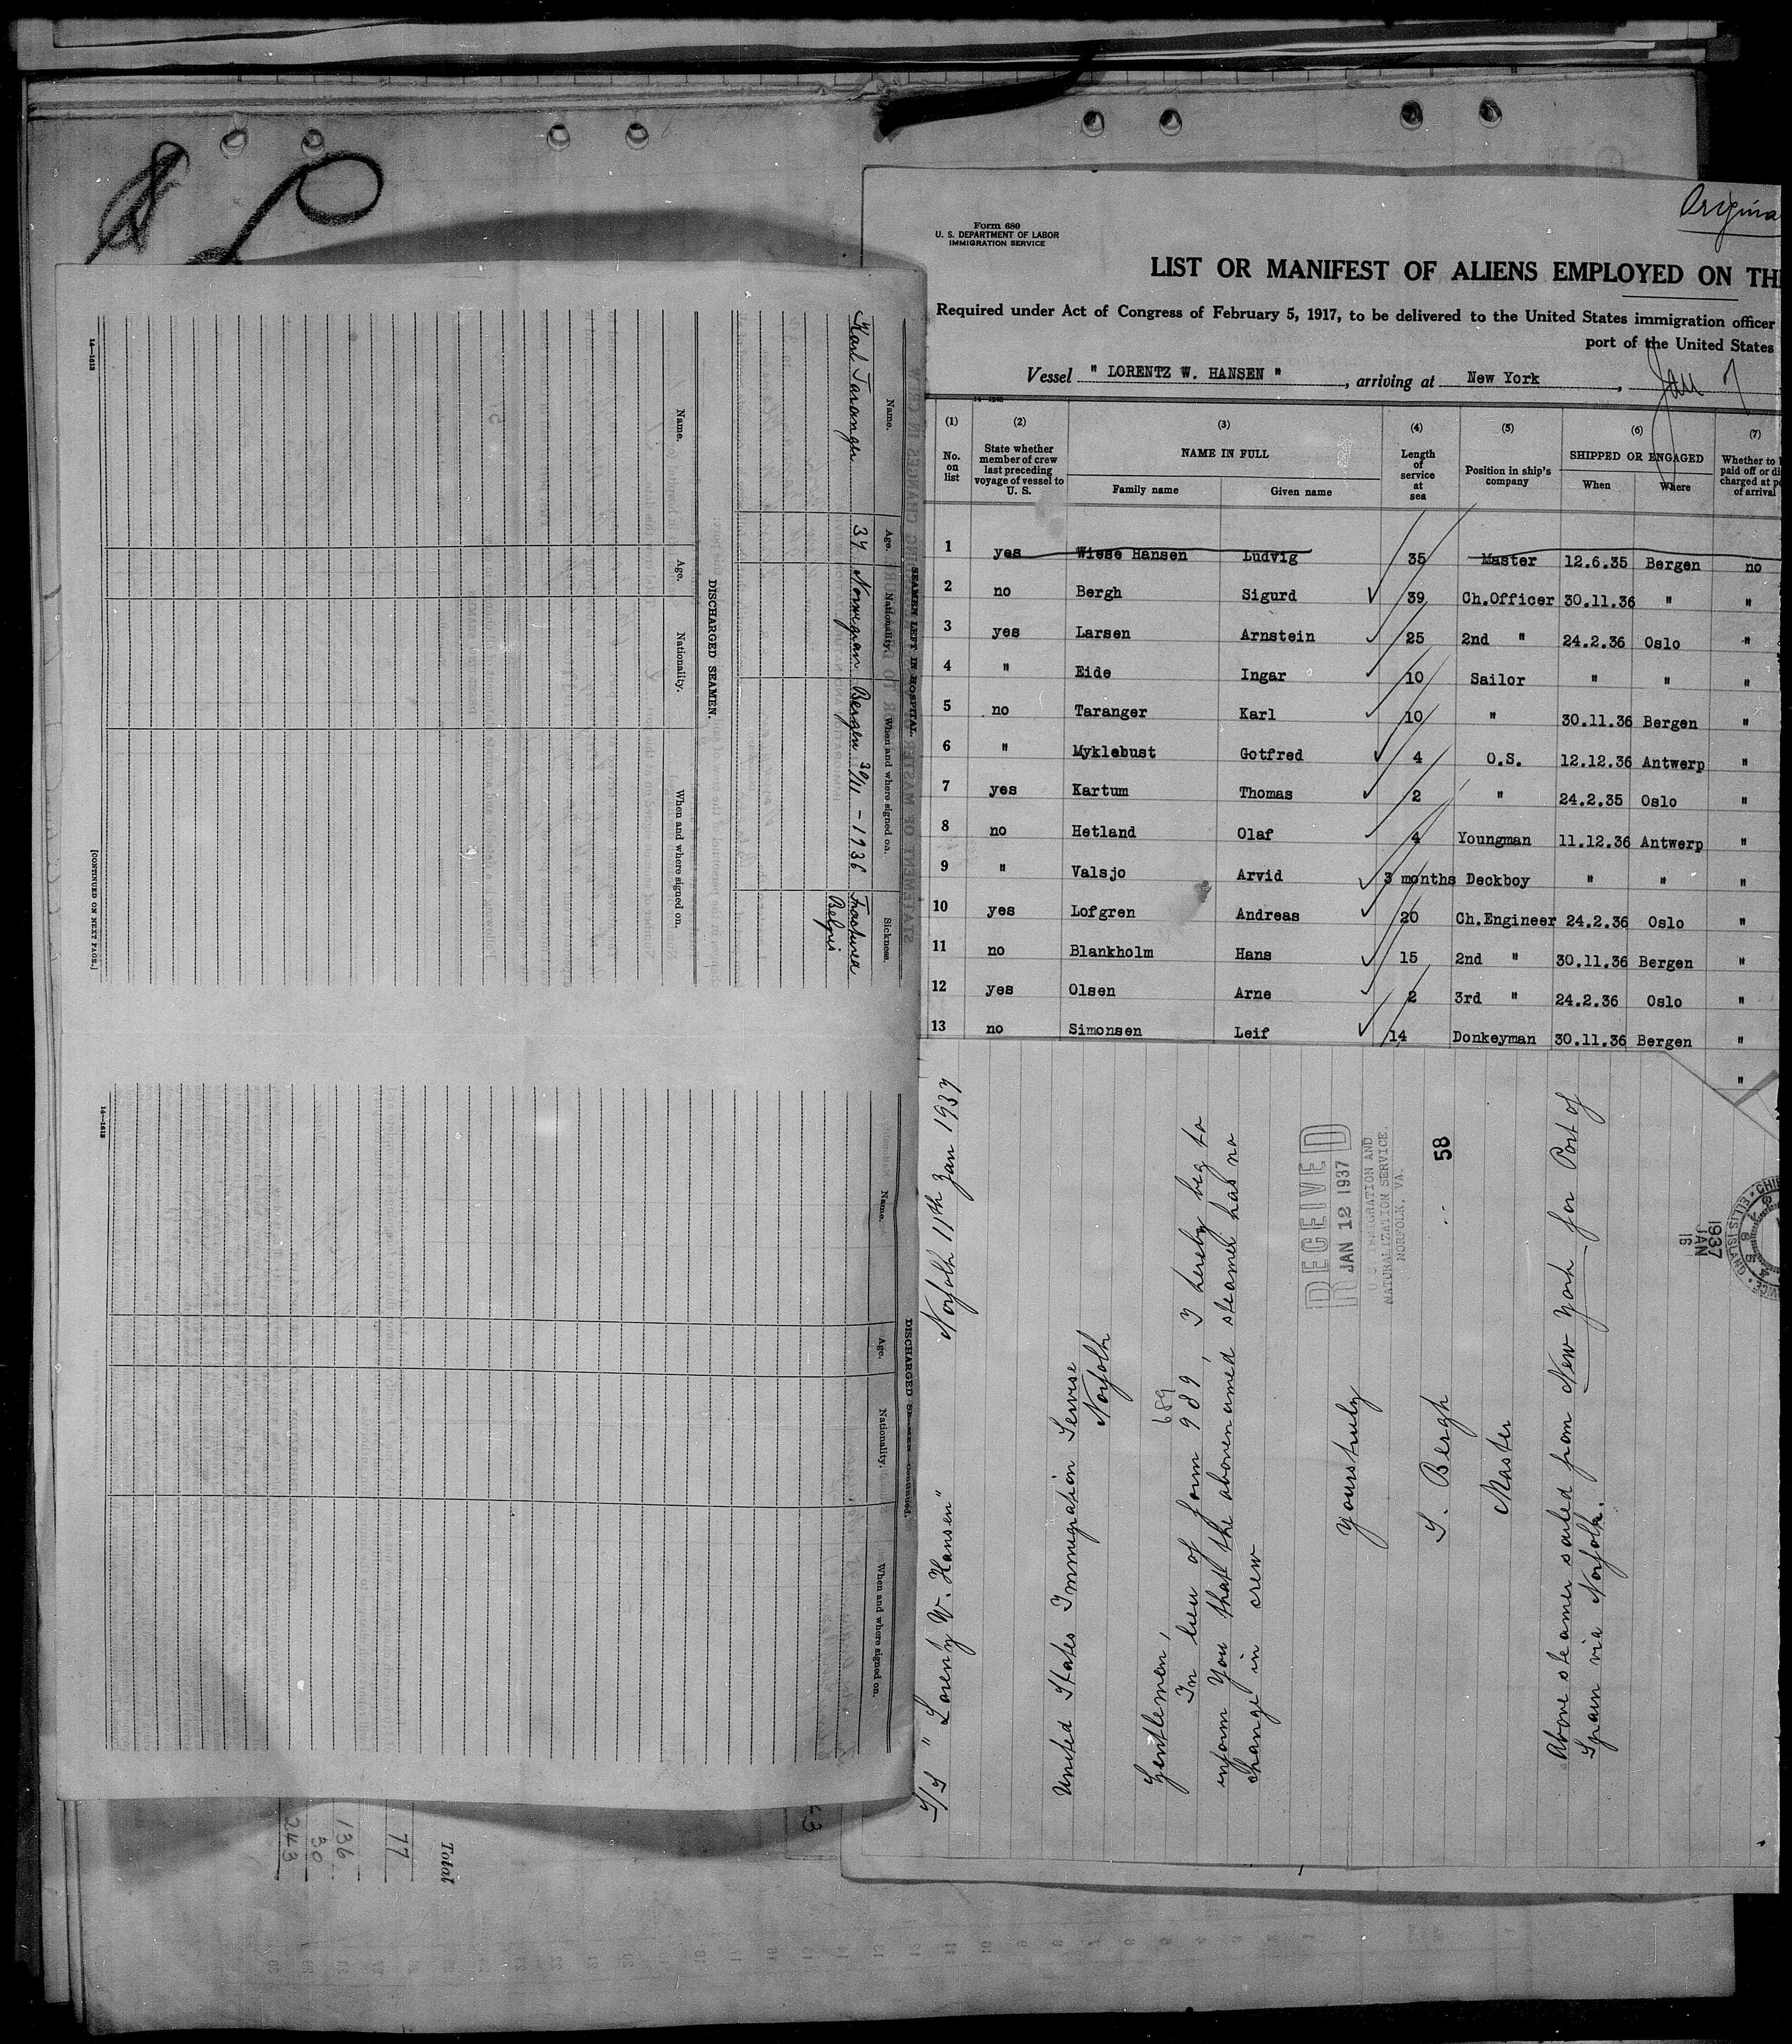 Origina
Form 680
U. S. DEPARTMENT OF LABOR
IMMIGRATION SERVICE
LIST OR MANIFEST OF ALIENS EMPLOYED ON TH
Required under Act of Congress of February 5, 1917, to be delivered to the United States immigration officer
port of the United States
Vessel " LORENTZ W. HANSEN ", arriving at New York, Jan 7
(1) (2) (3) (4) (5) (6) (7)
No. on list State whether member of crew last preceding voyage of vessel to U. S. NAME IN FULL Family name Given name Length of service at sea Position in ship's company SHIPPED OR ENGAGED When Where Whether to paid off or di charged at p of arrival
1 yes Wiese Hansen Ludvig 35 Master 12.6.35 Bergen no
2 no Bergh Sigurd 39 Ch.Officer 30.11.36 " "
3 yes Larsen Arnstein 25 2nd " 24.2.36 Oslo "
4 " Eide Ingar 10 Sailor " " "
5 no Taranger Karl 10 " 30.11.36 Bergen "
6 " Myklebust Gotfred 4 O.S. 12.12.36 Antwerp "
7 yes Kartum Thomas 2 " 24.2.35 Oslo "
8 no Hetland Olaf 4 Youngman 11.12.36 Antwerp "
9 " Valsjo Arvid 3 months Deckboy " " "
10 yes Lofgren Andreas 20 Ch.Engineer 24.2.36 Oslo "
11 no Blankholm Hans 15 2nd " 30.11.36 Bergen "
12 yes Olsen Arne 2 3rd " 24.2.36 Oslo "
13 no Simonsen Leif 14 Donkeyman 30.11.36 Bergen "
"
S/S " Lorentz W. Hansen" Norfolk 11th Jan 1937
United States Immigration Servise
Norfolk
Gentlemen,
689
In lieu of form 989, I hereby beg to
inform You that the abovenamed steamer has no
change in crew
Yours truly
S. Bergh
Master
Above steamer sailed from New York for Port of
Spain via Norfolk.
RECEIVED
JAN 12 1937
U. S. IMMIGRATION AND
NATURALIZATION SERVICE.
NORFOLK, VA.
58
1937
JAN
16
ELLIS ISLAND
SEAMEN LEFT IN HOSPITAL.
Name. Age. Nationality. When and where signed on. Sickness.
Karl Taranger 34 Norwegian Bergen 30/11 - 1936 Fractured
Belpis
DISCHARGED SEAMEN.
Name. Age. Nationality. When and where signed on.
14—1613
[CONTINUED ON NEXT PAGE.]
DISCHARGED SEAMEN—Continued.
Name. Age. Nationality. When and where signed on.
14—1613
Total
77
136
30
243